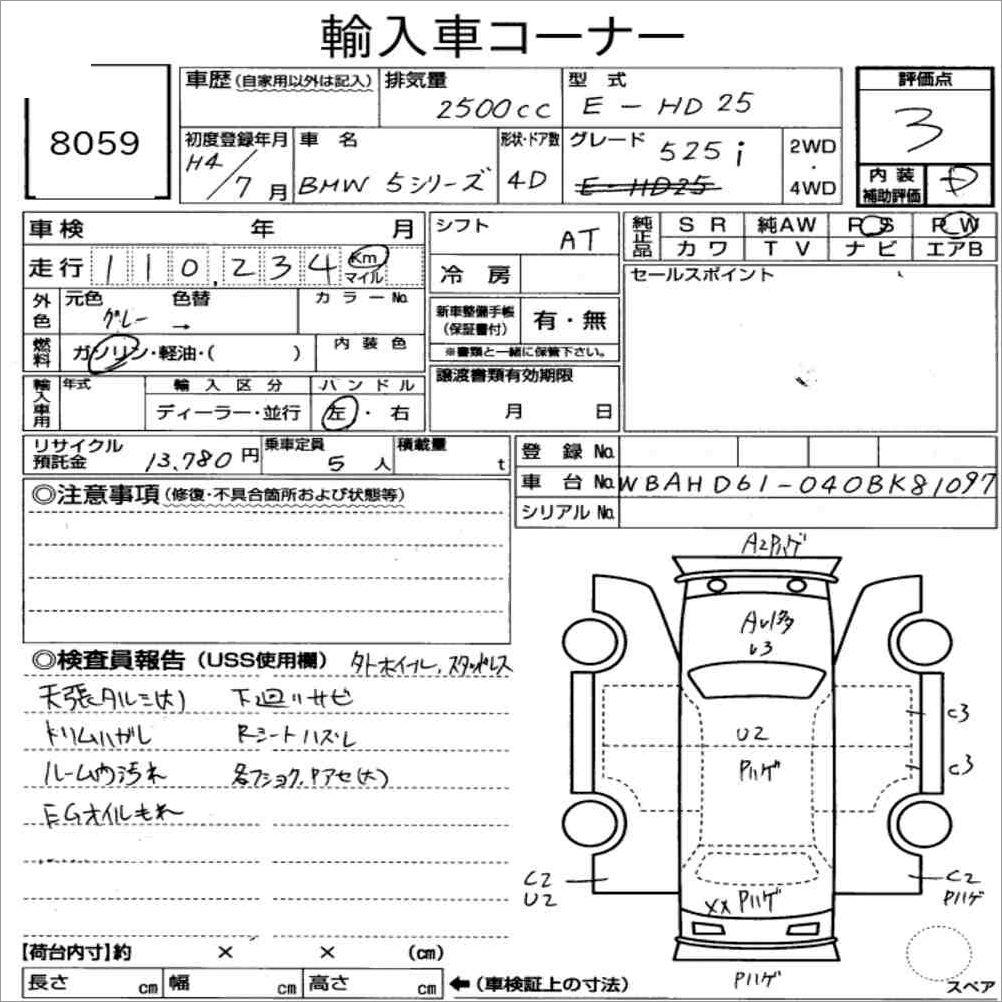 輸入車コーナー
8059
車歴(自家用以外は記入)
排気量 2500cc
型式 E-HD25
評価点 3
初度登録年月 H4/7月
車名 BMW 5シリーズ
形状・ドア数 4D
グレード 525i
E-HD25
2WD
・
4WD
内装
補助評価
車検 年 月
シフト AT
純正品
SR 純AW PS PW
カワ TV ナビ エアB
走行 110,234 Km
マイル
冷房
セールスポイント
外色 元色 グレー 色替 → カラーNo.
新車整備手帳
(保証書付)
有・無
燃料 ガソリン・軽油・( )
内装色
※書類と一緒に保管下さい。
譲渡書類有効期限
月 日
輸入車用 年式 輸入区分 ハンドル
ディーラー・並行 左・右
リサイクル
預託金 13,780円
乗車定員 5人
積載量 t
登録No.
車台No. WBAHD61-040BK81097
シリアルNo.
◎注意事項(修復・不具合箇所および状態等)
A2Pハゲ
◎検査員報告(USS使用欄)
天張タルミ(大) 下廻リサビ
ルーム内汚れ
EGオイルもれ
U2
Pハゲ
C3
C3
C2
U2
XX Pハゲ
C2
Pハゲ
Pハゲ
【荷台内寸】約 × × (cm)
長さ cm 幅 cm 高さ cm ←(車検証上の寸法)
スペア